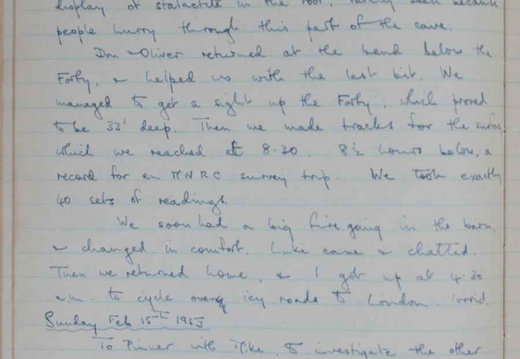 display of stalactites in the roof, rarely seen because
people hurry through this part of the cave.
Don & Oliver returned at the bend below the
Forty, & helped us with the last bit. We
managed to get a sight up the Forty, which proved
to be 33' deep. Then we made tracks for the surface
which we reached at 8.30, 8½ hours below, a
record for an MNRC survey trip. We took exactly
40 sets of readings.
We soon had a big fire going in the barn,
& changed in comfort. Luke came & chatted.
Then we returned home, & I got up at 4.30
a.m. to cycle over icy roads to London. 'orrid.
Sunday Feb 15th 1953
To Pinner with Mike, to investigate the other